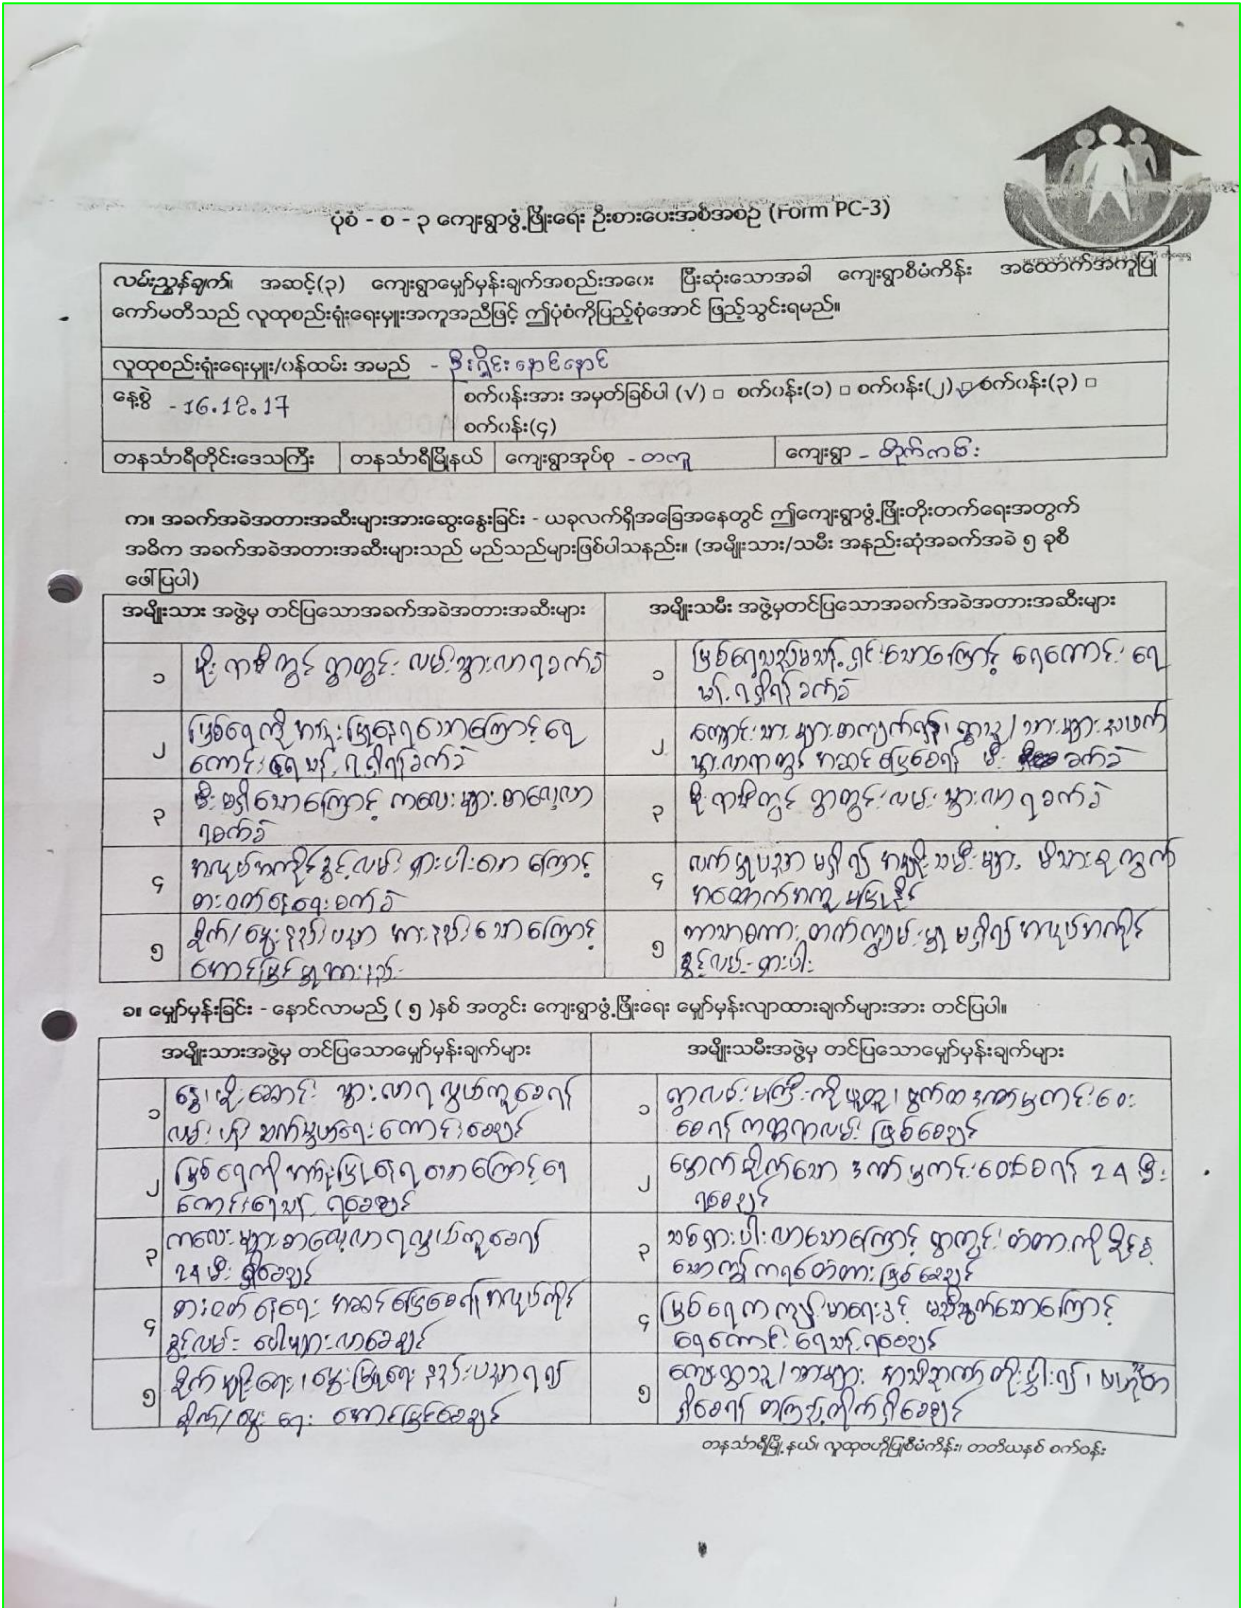 ပုံစံ - စ - ၃ ကျေးရွာဖွံ့ဖြိုးရေး ဦးစားပေးအစီအစဉ် (Form PC-3)
လမ်းညွှန်ချက်။ အဆင့်(၃) ကျေးရွာမျှော်မှန်းချက်အစည်းအဝေး ပြီးဆုံးသောအခါ ကျေးရွာစီမံကိန်း အထောက်အကူပြု
ကော်မတီသည် လူထုစည်းရုံးရေးမှူးအကူအညီဖြင့် ဤပုံစံကိုပြည့်စုံအောင် ဖြည့်သွင်းရမည်။
လူထုစည်းရုံးရေးမှူး/ဝန်ထမ်း အမည် - ဦးရှိုင်းနောင်နောင်
နေ့စွဲ - 16.12.17
စက်ဝန်းအား အမှတ်ခြစ်ပါ (√) □ စက်ဝန်း(၁) □ စက်ဝန်း(၂) ☑ စက်ဝန်း(၃) □
စက်ဝန်း(၄)
တနင်္သာရီတိုင်းဒေသကြီး တနင်္သာရီမြို့နယ် ကျေးရွာအုပ်စု - တကူ ကျေးရွာ - တိုက်ကမ်း
က။ အခက်အခဲအတားအဆီးများအားဆွေးနွေးခြင်း - ယခုလက်ရှိအခြေအနေတွင် ဤကျေးရွာဖွံ့ဖြိုးတိုးတက်ရေးအတွက်
အဓိက အခက်အခဲအတားအဆီးများသည် မည်သည်များဖြစ်ပါသနည်း။ (အမျိုးသား/သမီး အနည်းဆုံအခက်အခဲ ၅ ခုစီ
ဖေါ်ပြပါ)
အမျိုးသား အဖွဲ့မှ တင်ပြသောအခက်အခဲအတားအဆီးများ
အမျိုးသမီး အဖွဲ့မှတင်ပြသောအခက်အခဲအတားအဆီးများ
၁ မိုးရာသီတွင် ရွာတွင်းလမ်းသွားလာရခက်ခဲ
၁ မြစ်ရေသည်မသန့်ရှင်းသောကြောင့် ရေကောင်းရေ
သန့်ရရှိရန်ခက်ခဲ
၂ မြစ်ရေကို အသုံးပြုနေရသောကြောင့် ရေ
ကောင်းရေသန့်ရရှိရန်ခက်ခဲ
၂ ကျောင်းသားများစာကျက်ရန်၊ ရွာသူ/သားများညဖက်
သွားလာရာတွင် အဆင်ပြေစေရန် မီး ခက်ခဲ
၃ မီးမရှိသောကြောင့် ကလေးများစာလေ့လာ
ရခက်ခဲ
၃ မိုးရာသီတွင် ရွာတွင်းလမ်းသွားလာရခက်ခဲ
၄ အလုပ်အကိုင်ခွင့်လမ်းရှားပါးသောကြောင့်
စားဝတ်နေရေးခက်ခဲ
၄ လက်မှုပညာမရှိ၍ အမျိုးသမီးများ မိသားစုအတွက်
အထောက်အကူမပြုနိုင်
၅ စိုက်/မွေးနည်းပညာအားနည်းသောကြောင့်
အောင်မြင်မှုအားနည်း
၅ ဘာသာစကားတတ်ကျွမ်းမှုမရှိ၍ အလုပ်အကိုင်
ခွင့်လမ်းရှားပါး
ခ။ မျှော်မှန်းခြင်း - နောင်လာမည့် ( ၅ )နှစ် အတွင်း ကျေးရွာဖွံ့ဖြိုးရေး မျှော်မှန်းလျာထားချက်များအား တင်ပြပါ။
အမျိုးသားအဖွဲ့မှ တင်ပြသောမျှော်မှန်းချက်များ
အမျိုးသမီးအဖွဲ့မှ တင်ပြသောမျှော်မှန်းချက်များ
၁ နွေ၊မိုး၊ဆောင်း သွားလာရလွယ်ကူစေရန်
လမ်းပန်းဆက်သွယ်ရေးကောင်းစေချင်
၁ ရွာလမ်းမကြီးကို လူသူ၊ ထွက် အန္တရာယ်ကင်းဝေး
စေရန် ကတ္တရာလမ်းဖြစ်စေချင်
၂ မြစ်ရေကိုအသုံးပြုနေရသောကြောင့် ရေ
ကောင်းရေသန့်ရစေချင်
၂ မှောက်မိုက်သော အန္တရာယ်ကင်းဝေးစေရန် 24 မီး
ရစေချင်
၃ ကလေးများစာလေ့လာရလွယ်ကူစေရန်
24 မီးရှိစေချင်
၃ သစ်ရှားပါးလာသောကြောင့် ရွာတွင်းတံတားကိုခိုင်ခံ့
သောကွန်ကရစ်တံတားဖြစ်စေချင်
၄ စားဝတ်နေရေး အဆင်ပြေစေရန် အလုပ်အကိုင်
ခွင့်လမ်းပေါများလာစေချင်
၄ မြစ်ရေက ကျန်းမာရေးနှင့် မညီညွတ်သောကြောင့်
ရေကောင်းရေသန့်ရစေချင်
၅ စိုက်ပျိုးရေး၊ မွေးမြူရေးနည်းပညာရ၍
စိုက်/မွေးရေး အောင်မြင်စေချင်
၅ ကျေးရွာသူ/သားများ အသိဉာဏ်တိုးပွါး၍၊ ဗဟုသုတ
ရှိစေရန် စာကြည့်တိုက်ရှိစေချင်
တနင်္သာရီမြို့နယ်၊ လူထုဗဟိုပြုစီမံကိန်း၊ တတိယနှစ် စက်ဝန်း